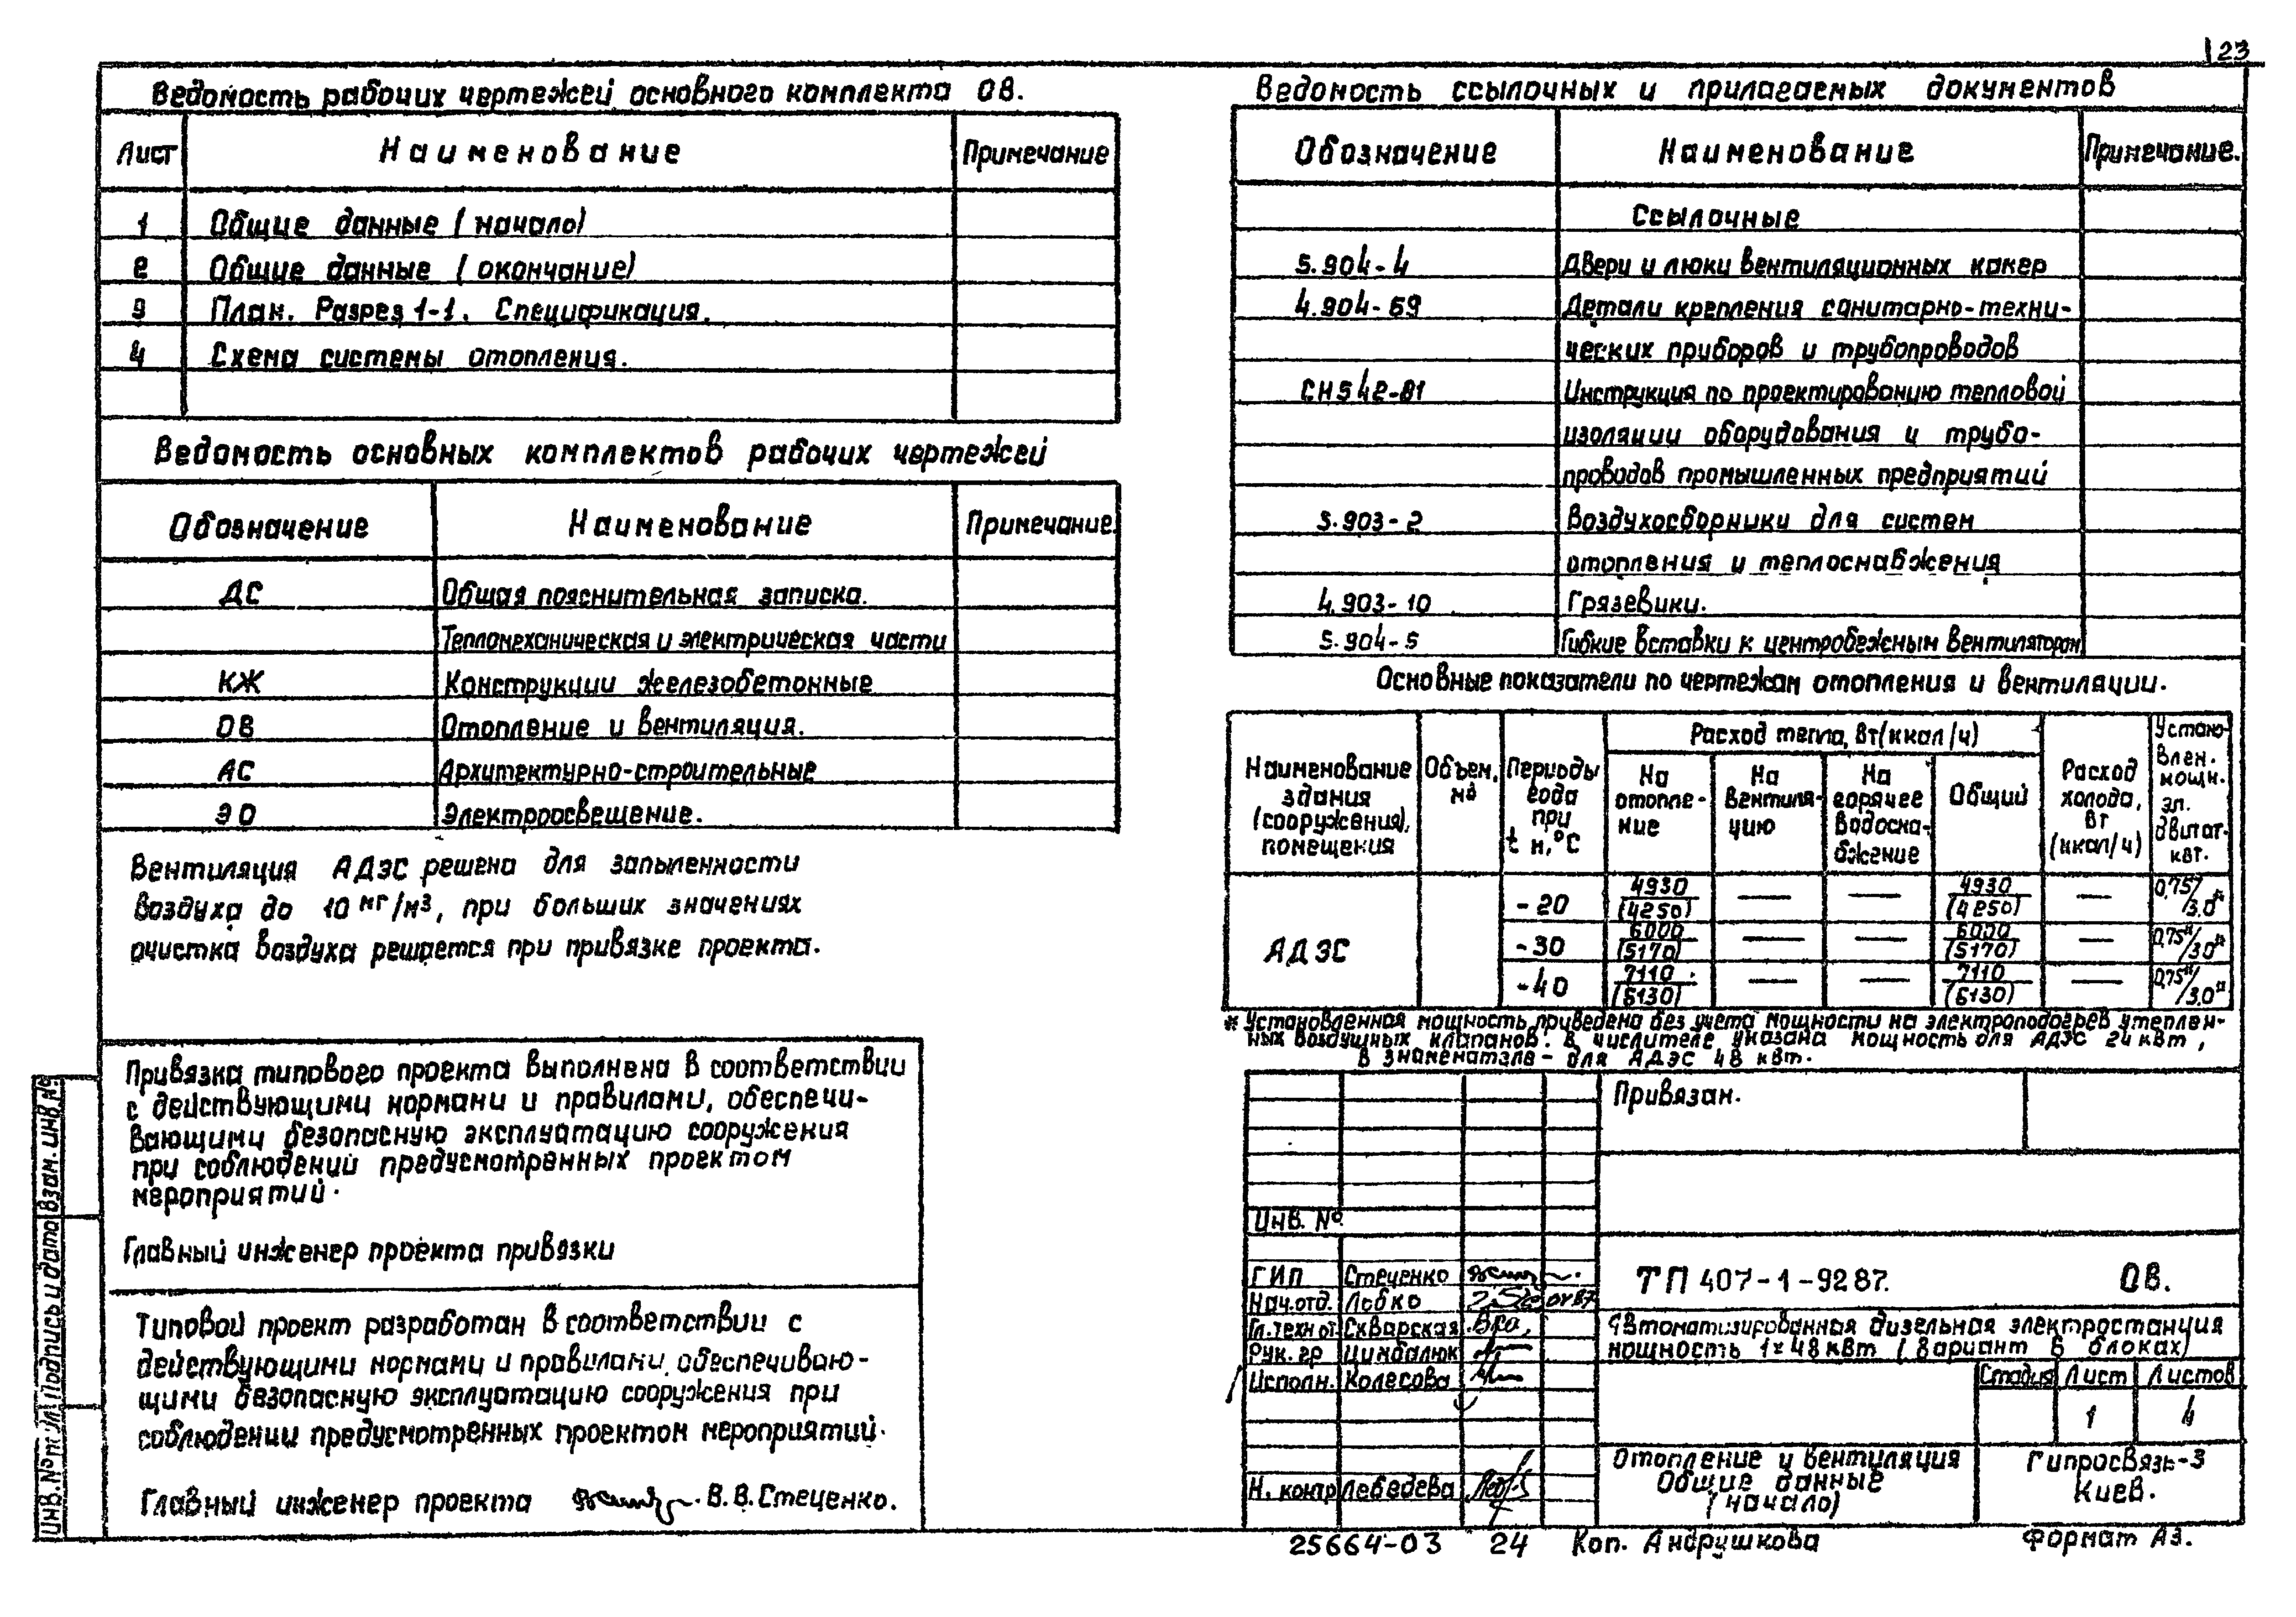 23
Ведомость рабочих чертежей основного комплекта ОВ.
Лист Наименование Примечание
1 Общие данные (начало)
2 Общие данные (окончание)
3 План. Разрез 1-1. Спецификация.
4 Схема системы отопления.
Ведомость основных комплектов рабочих чертежей
Обозначение Наименование Примечание.
ДС Общая пояснительная записка.
Тепломеханическая и электрическая части
КЖ Конструкции железобетонные
ОВ Отопление и вентиляция.
АС Архитектурно-строительные
ЭО Электроосвещение.
Вентиляция АДЭС решена для запыленности
воздуха до 10 мг/м3, при больших значениях
очистка воздуха решается при привязке проекта.
Привязка типового проекта выполнена в соответствии
с действующими нормами и правилами, обеспечи-
вающими безопасную эксплуатацию сооружения
при соблюдений предусмотренных проектом
мероприятий.
Главный инженер проекта привязки
Типовой проект разработан в соответствии с
действующими нормами и правилами обеспечиваю-
щими безопасную эксплуатацию сооружения при
соблюдении предусмотренных проектом мероприятий.
Главный инженер проекта В.В.Стеценко.
Инв.№ подл Подпись и дата Взам.инв.№
Ведомость ссылочных и прилагаемых документов
Обозначение Наименование Примечание.
Ссылочные
5.904-4 Двери и люки вентиляционных камер
4.904-69 Детали крепления санитарно-техни-
ческих приборов и трубопроводов
СН542-81 Инструкция по проектированию тепловой
изоляции оборудования и трубо-
проводов промышленных предприятий
5.903-2 Воздухосборники для систем
отопления и теплоснабжения
4.903-10 Грязевики.
5.904-5 Гибкие вставки к центробежным вентиляторам
Основные показатели по чертежам отопления и вентиляции.
Наименование здания (сооружения), помещения
Объем, м3
Периоды года при t н,°С
Расход тепла, Вт(ккал/ч)
На отопле-ние
На вентиля-цию
На горячее водосна-бжение
Общий
Расход холода, Вт (ккал/ч)
Установлен. мощн. эл. двигат. квт.
АДЭС
-20 4930/(4250) — — 4930/(4250) — 0,75*/3.0*
-30 6000/(5170) — — 6000/(5170) — 0,75*/3.0*
-40 7110/(6130) — — 7110/(6130) — 0,75*/3.0*
* Установленная мощность приведена без учета мощности на электроподогрев утеплен-
ных воздушных клапанов. В числителе указана мощность для АДЭС 24 квт,
в знаменателе - для АДЭС 48 квт.
Привязан.
Инв. №
ГИП Стеценко
Нач.отд. Лобко 04.87
Гл.техн от. Скварская
Рук. гр Цимбалюк
Исполн. Колесова
Н. контр Лебедева
ТП 407-1-92 87. ОВ.
Автоматизированная дизельная электростанция
мощность 1х48 кВт (вариант в блоках)
Стадия Лист Листов
1 4
Отопление и вентиляция
Общие данные
(начало)
Гипросвязь-3
Киев.
25664-03 24 Коп. Андрушкова Формат А3.